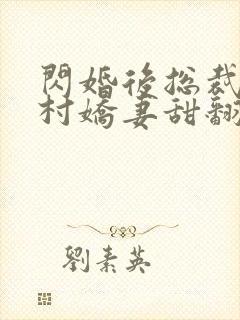 閃婚後總裁
村嬌妻甜翻
劉素英